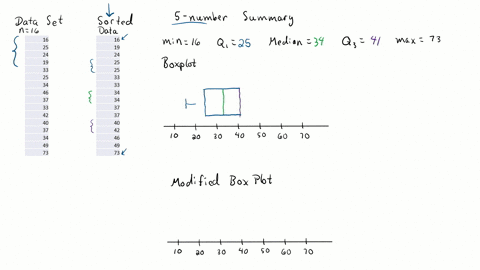 Data Set
n=16
16
25
24
19
33
25
34
46
37
33
42
40
37
34
49
73
Sorted
Data
16
19
24
25
25
33
33
34
34
37
37
40
42
46
49
73
5-number Summary
min=16 Q₁=25 Median=34 Q₃=41 max=73
Boxplot
10 20 30 40 50 60 70
Modified Box Plot
10 20 30 40 50 60 70